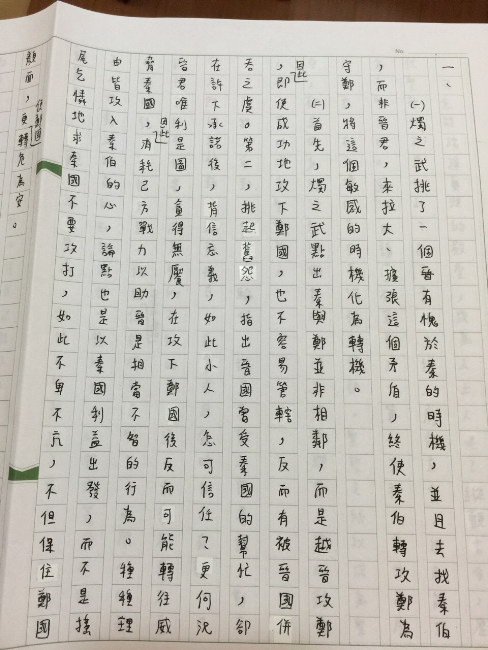 一、
㈠燭之武挑了一個晉有愧於秦的時機，並且去找秦伯
，而非晉君，來拉大、擴張這個矛盾，終使秦伯轉攻鄭為
守鄭，將這個敏感的時機化為轉機。
㈡首先，燭之武點出秦與鄭並非相鄰，而是越晉攻鄭
，因此即使成功地攻下鄭國，也不容易管轄，反而有被晉國併
吞之虞。第二，挑起舊怨，指出晉國曾受秦國的幫忙，卻
在許下承諾後，背信忘義，如此小人，怎可信任？更何況
晉君唯利是圖，貪得無饜，在攻下鄭國後反而可能轉往威
脅秦國，因此消耗己方戰力以助晉是相當不智的行為。種種理
由皆攻入秦伯的心，論點也是以秦國利益出發，而不是搖
尾乞憐地求秦國不要攻打，如此不卑不亢，不但保住鄭國
顏面，更轉危為安。